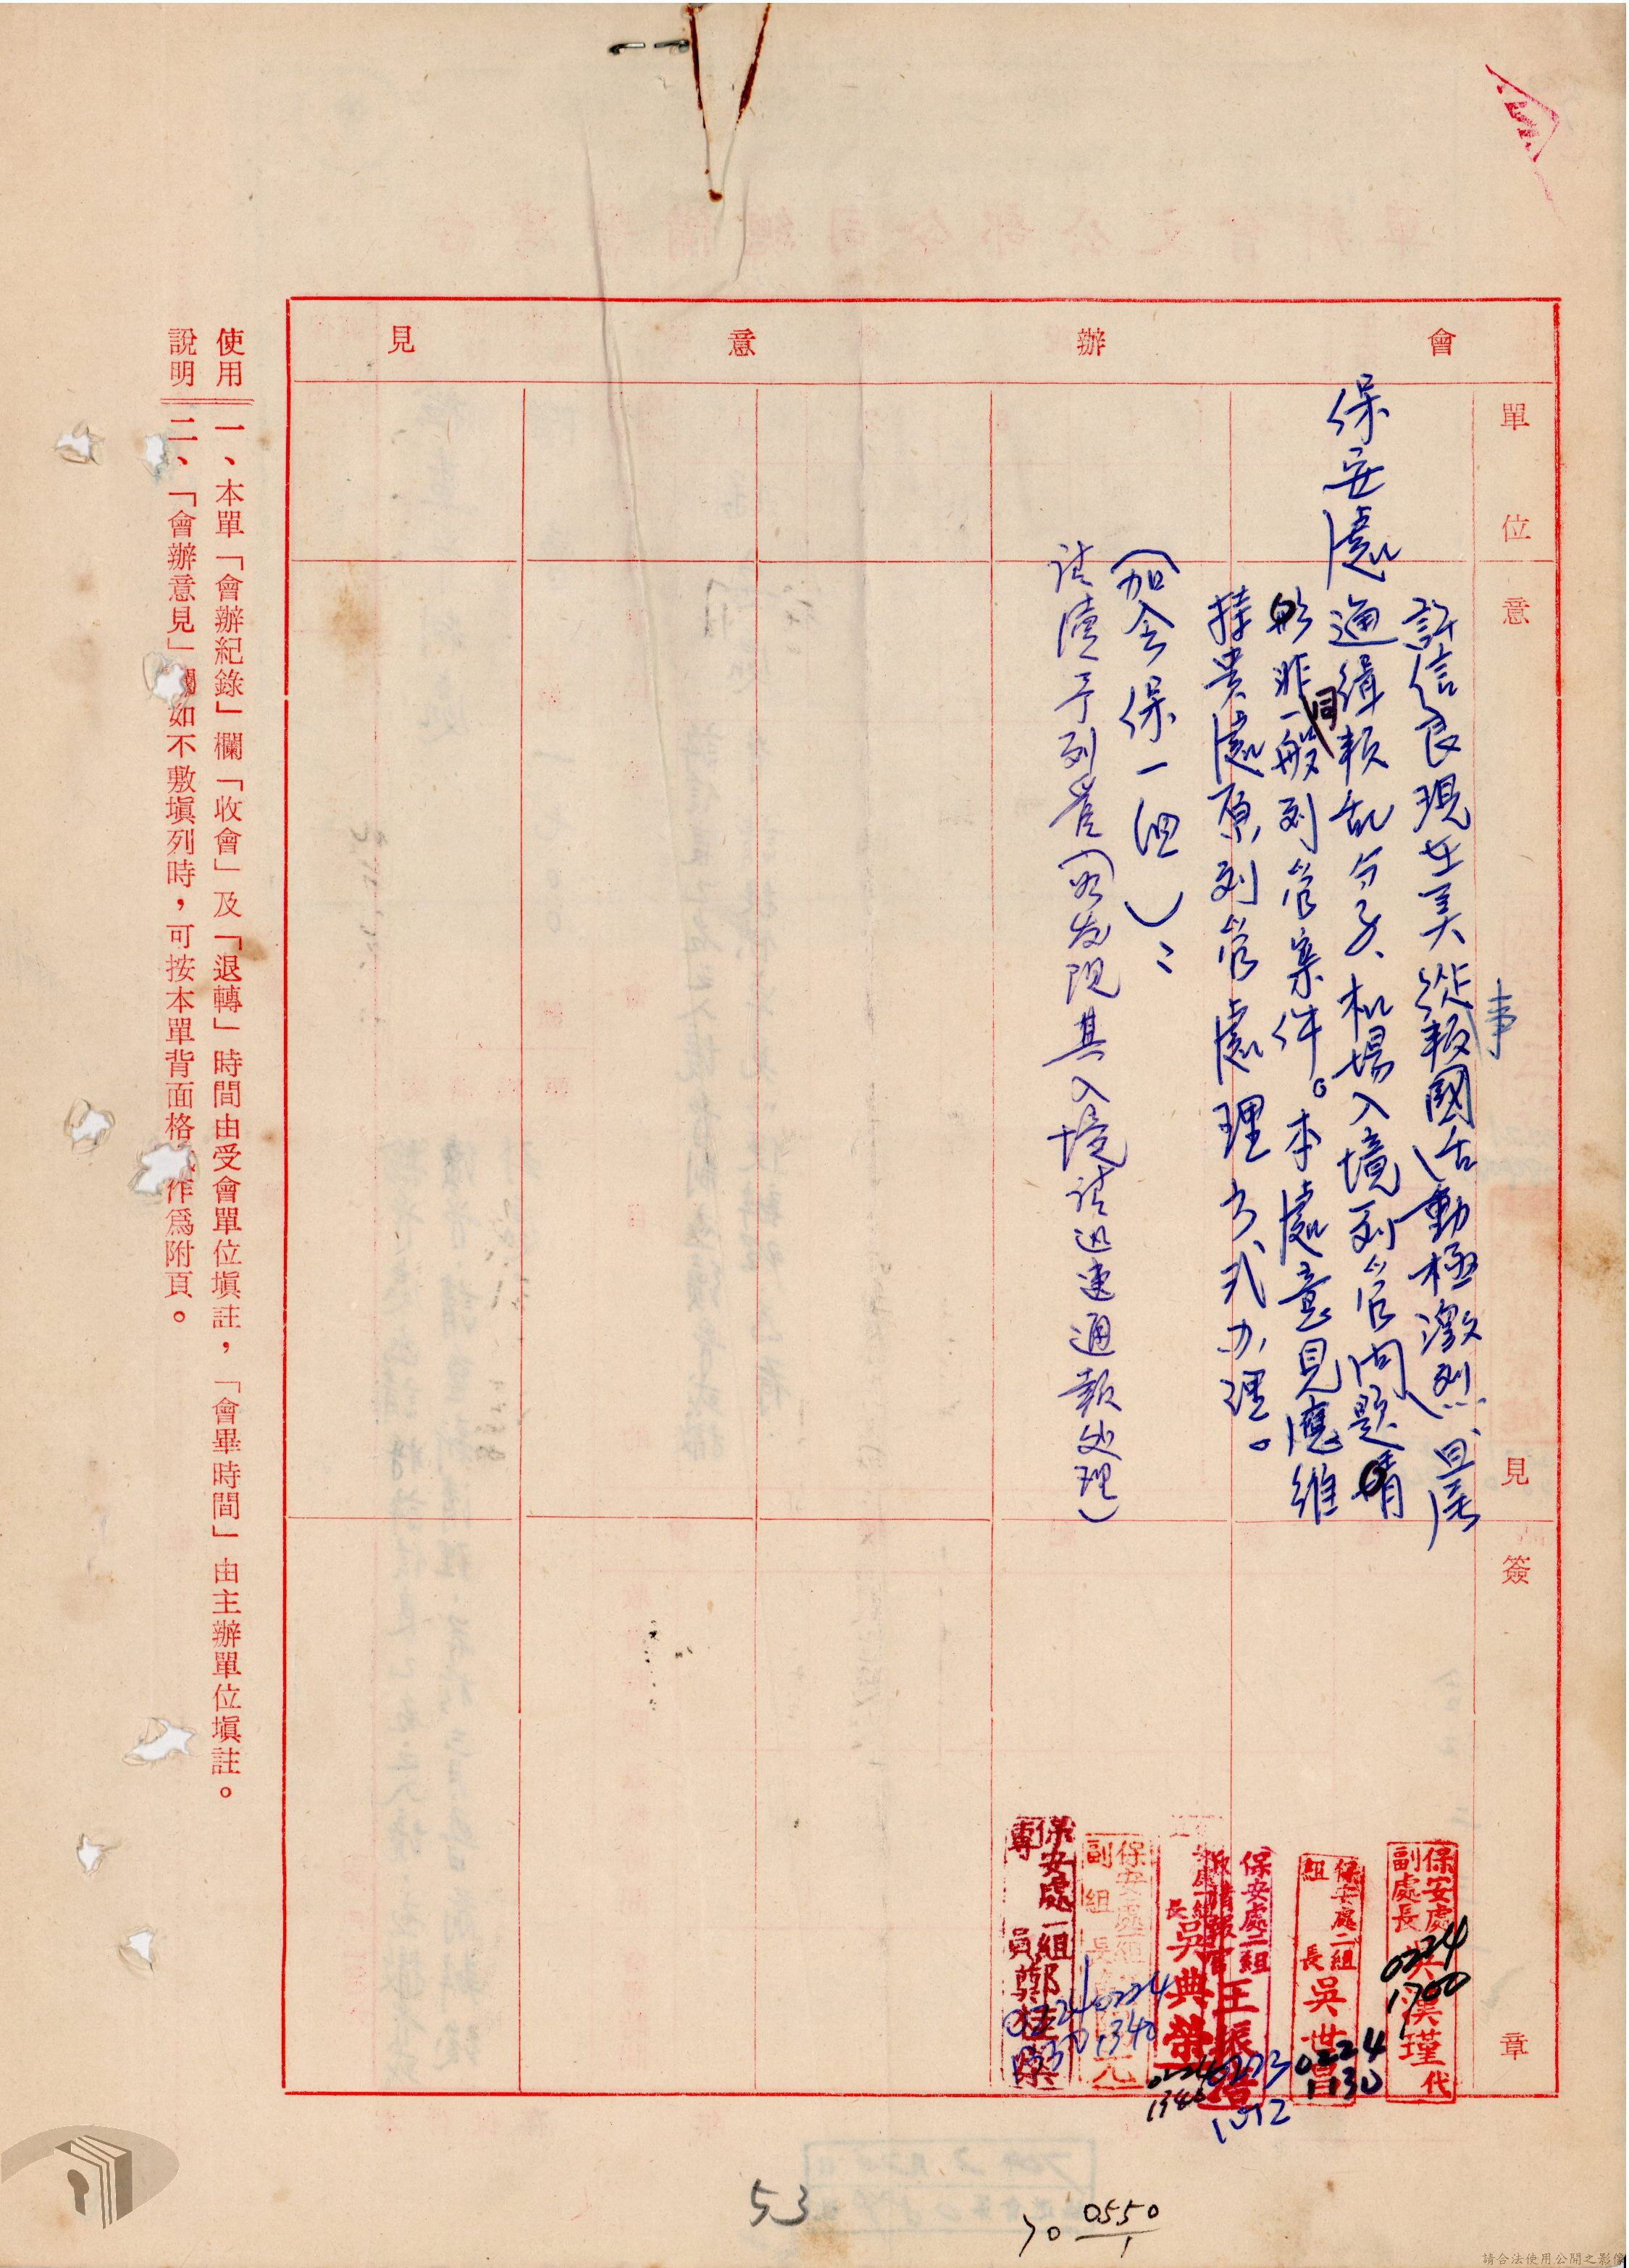 會辦意見
單位
意見
簽章
保安處
許信良現在美從事叛國活動極激烈，且屬
通緝叛乱分子、机場入境列管問題情
形非同一般列管案件。本處意見應維
持貴處原列管處理方式办理。
（加会保一組）：
請續予列管（如发現其入境請迅速通報处理）
保安處副處長 吳漢瑾代
0224
1700
保安處二組組長吳世昌
0224
1130
保安處二組
情報官王振
0223
1512
長吳典榮
0224
1340
保安處一組
副組長
元
0224
1340
保安處一組
專員鄭
0224
1330
使用說明
一、本單「會辦紀錄」欄「收會」及「退轉」時間由受會單位填註，「會畢時間」由主辦單位填註。
二、「會辦意見」欄如不敷填列時，可按本單背面格式作為附頁。
53
70 0550/1
請合法使用公開之影像